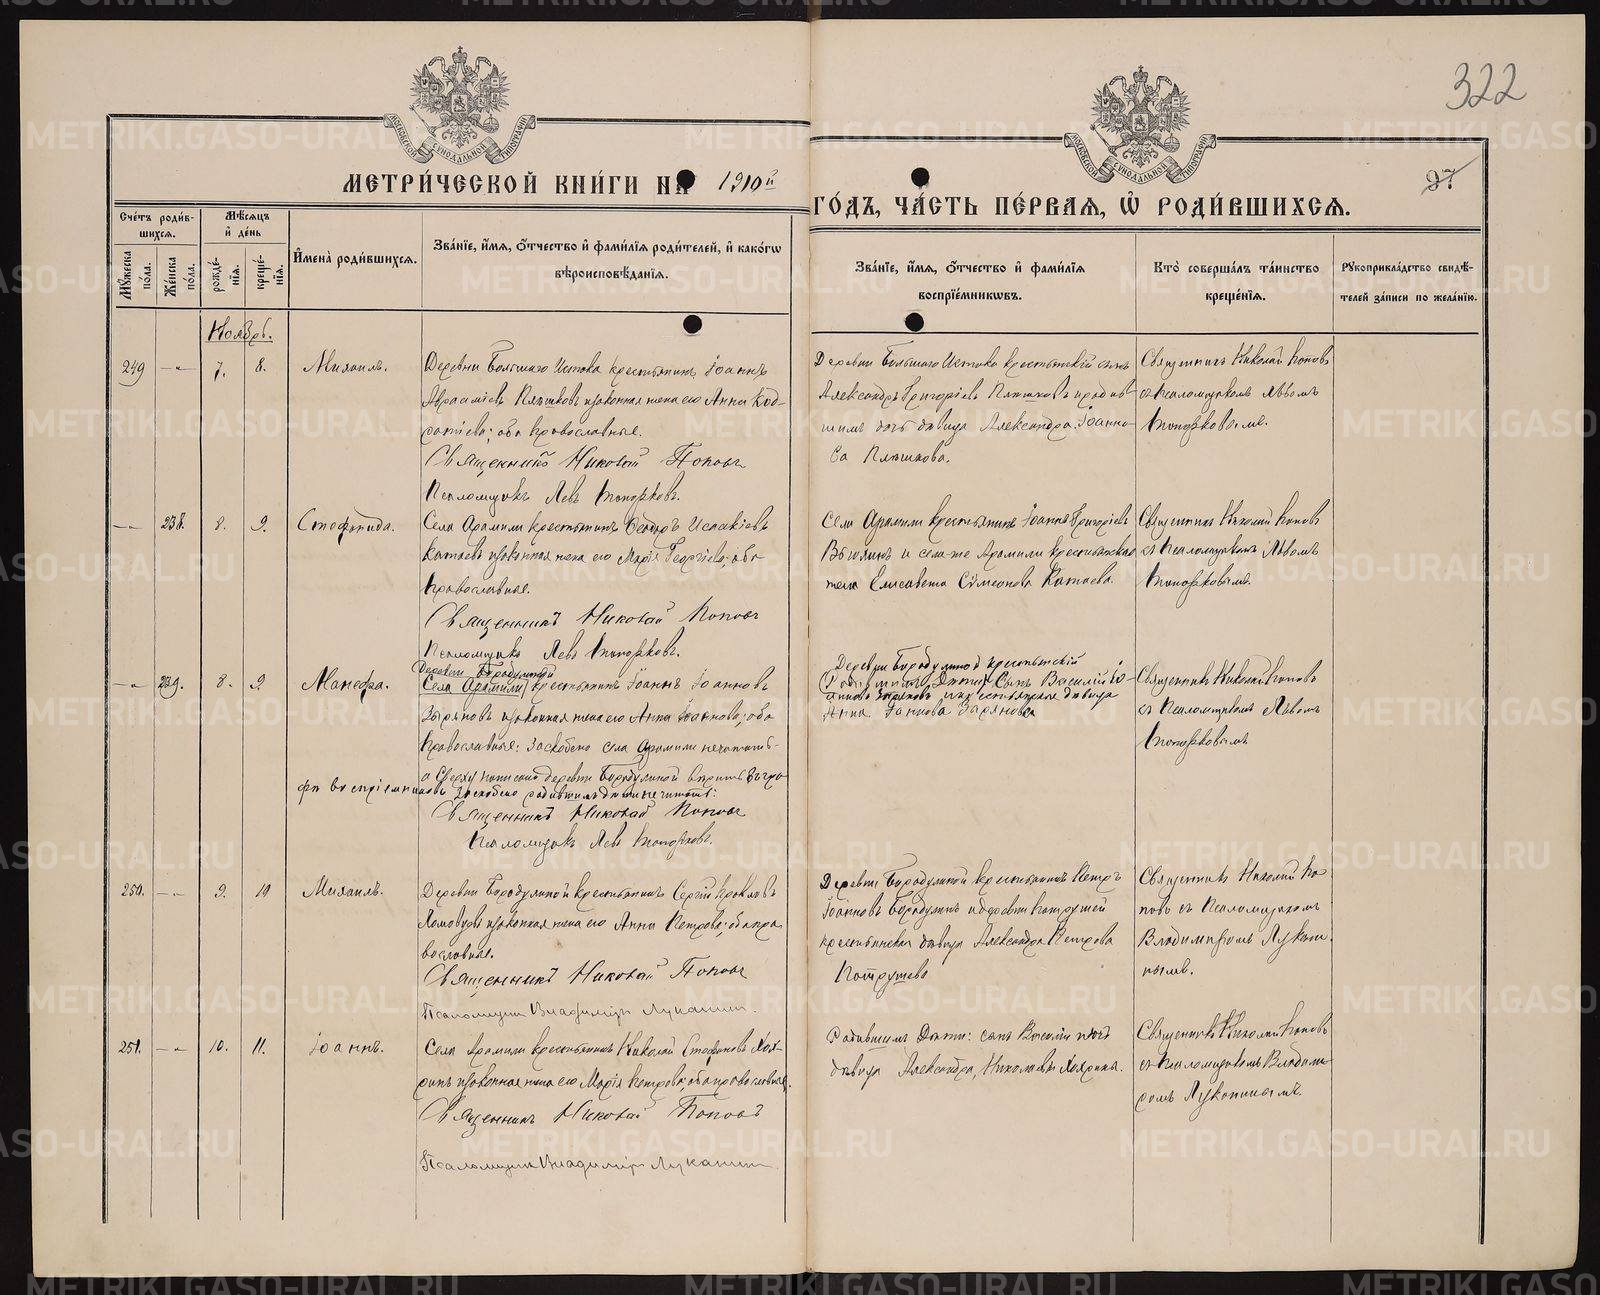 322
27
МЕТРИ́ЧЕСКОЙ КНИ́ГИ НА 1910й
ГО́ДЪ, ЧА́СТЬ ПЕ́РВАЯ, Ѡ РОДИ́ВШИХСЯ.
Сче́тъ роди́в-
шихся.
Мѣ́сяцъ
и҆ де́нь
Мꙋ́жеска
по́ла.
Же́нска
по́ла.
рожде́-
нїя.
креще́-
нїя.
И҆мена̀ роди́вшихся.
Зва́нїе, и҆́мя, ѻ҆́тчество и҆ фами́лїя роди́телей, и҆ како́гѡ
вѣроисповѣ́данїя.
Зва́нїе, и҆́мя, ѻ҆́тчество и҆ фами́лїя
воспрїе́мникѡвъ.
Кто̀ соверша́лъ та́инство
креще́нїя.
Рꙋкоприкла́дство свидѣ́-
телей за́писи по жела́нїю.
Ноябрь.
249 —„— 7. 8. Михаилъ.
Деревни Большаго Истока крестьянинъ Іоаннъ
Авраамiевъ Пляшковъ и законная жена его Анна Код-
ратiева; оба православные.
Священникъ Николай Поповъ
Псаломщикъ Левъ Топорковъ.
Деревни Большаго Истока крестьянскiй сынъ
Александръ Григорiевъ Пляшковъ и родив-
шимъ дочь дѣвица Александра Іоанно-
ва Пляшкова.
Священникъ Николай Поповъ
съ псаломщикомъ Львомъ
Топорковымъ.
—„— 238. 8. 9. Стефанида.
Села Арамили крестьянинъ Ѳеодоръ Исаакiевъ
Катаевъ и законная жена его Марiя Георгiева; оба
православные.
Священникъ Николай Поповъ
Псаломщикъ Левъ Топорковъ.
Села Арамили крестьянинъ Іоаннъ Григорiевъ
и села-же Арамили крестьянская
жена Елисавета Сѵмеонова Катаева.
Священникъ Николай Поповъ
съ псаломщикомъ Львомъ
Топорковымъ.
—„— 239. 8. 9. Манефа.
Деревни Бородулиной
(Села Арамили) крестьянинъ Іоаннъ Іоанновъ
Зыряновъ и законная жена его Анна Іоаннова; оба
православные: Заскоблено села Арамили нечитать-
а сверху написано деревни Бородулиной вѣрить въ гра-
фѣ воспрiемниковъ заскоблено родившимъ дѣти нечитать:
Священникъ Николай Поповъ
Псаломщикъ Левъ Топорковъ.
Деревни Бородулиной крестьянскiй
(Родившимъ Дѣти) Сынъ Василiй Іо-
анновъ Зыряновъ и крестьянская дѣвица
Анна Іоаннова Зырянова
Священникъ Николай Поповъ
съ псаломщикомъ Львомъ
Топорковымъ
250. —„— 9. 10 Михаилъ.
Деревни Бородулиной крестьянинъ Сергiй
и законная жена его Анна Петрова; оба пра
вославные.
Священникъ Николай Поповъ
Псаломщикъ Владимiръ Луканинъ.
Деревни Бородулиной крестьянинъ Петръ
Іоанновъ Бородулинъ и деревни Патрушей
крестьянская дѣвица Александра Петрова
Патрушева
Священникъ Николай По
повъ съ псаломщикомъ
Владимiромъ Лукани-
нымъ.
251. —„— 10. 11. Іоаннъ.
Села Арамили крестьянинъ Николай Стефановъ Хох-
ринъ и законная жена его Марiя Петрова; оба православные.
Священникъ Николай Поповъ
Псаломщикъ Владимiръ Луканинъ.
Родившимъ Дѣти: сынъ Василiй и дочь
дѣвица Александра, Николаевы Хохрины.
Священникъ Николай Поповъ
съ псаломщикомъ Владими-
ромъ Луканинымъ.